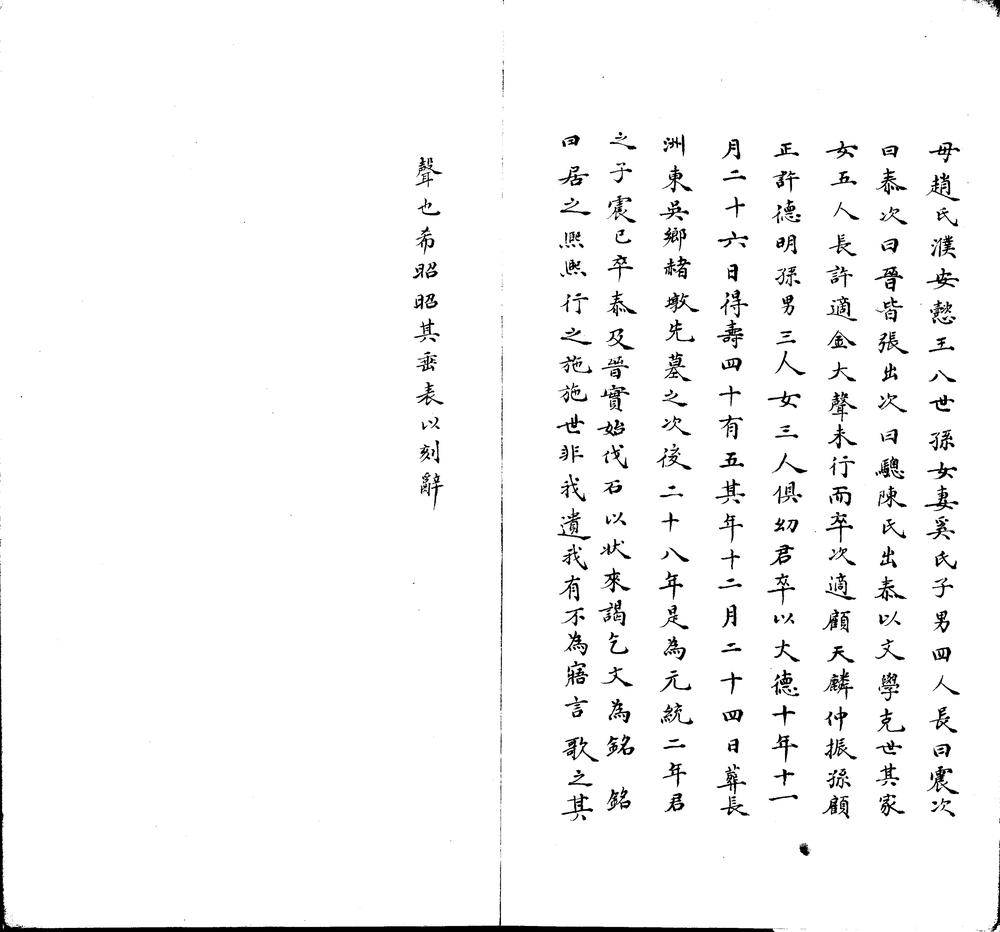 母趙氏濮安懿王八世孫女妻奚氏子男四人長曰震次
曰泰次曰晉皆張出次曰驄陳氏出泰以文學克世其家
女五人長許適金大聲未行而卒次適顧天麟仲振孫顧
正許德明孫男三人女三人俱幼君卒以大德十年十一
月二十六日得壽四十有五其年十二月二十四日葬長
洲東吳鄉赭墩先墓之次後二十八年是為元統二年君
之子震已卒泰及晉實始伐石以狀來謁乞文為銘 銘
曰居之熙熙行之施施世非我遺我有不為寤言歌之其
聲也希昭昭其垂表以刻辭